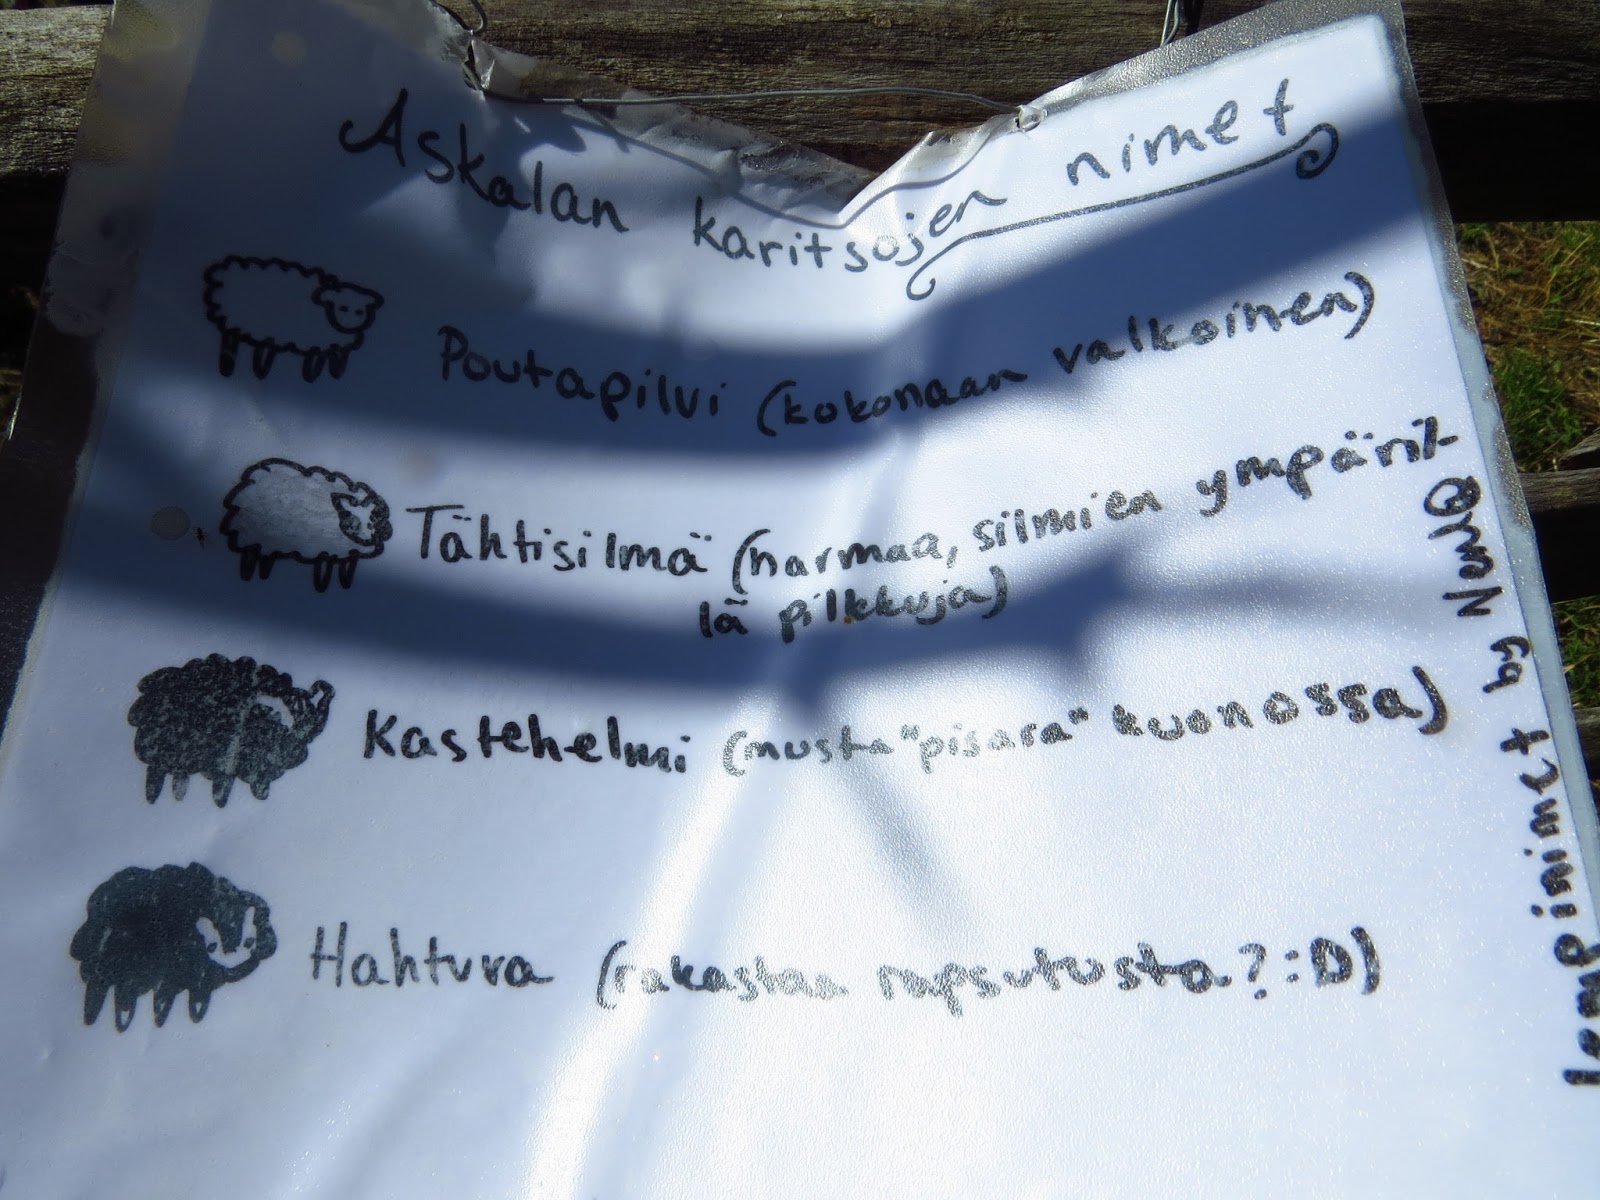 Askalan karitsojen nimet
Poutapilvi (kokonaan valkoinen)
Tähtisilmä (harmaa, silmien ympäril-
lä pilkkuja)
Kastehelmi (musta "pisara" kuonossa)
Hahtuva (rakastaa rapsutusta? :D)
Lempinimet by